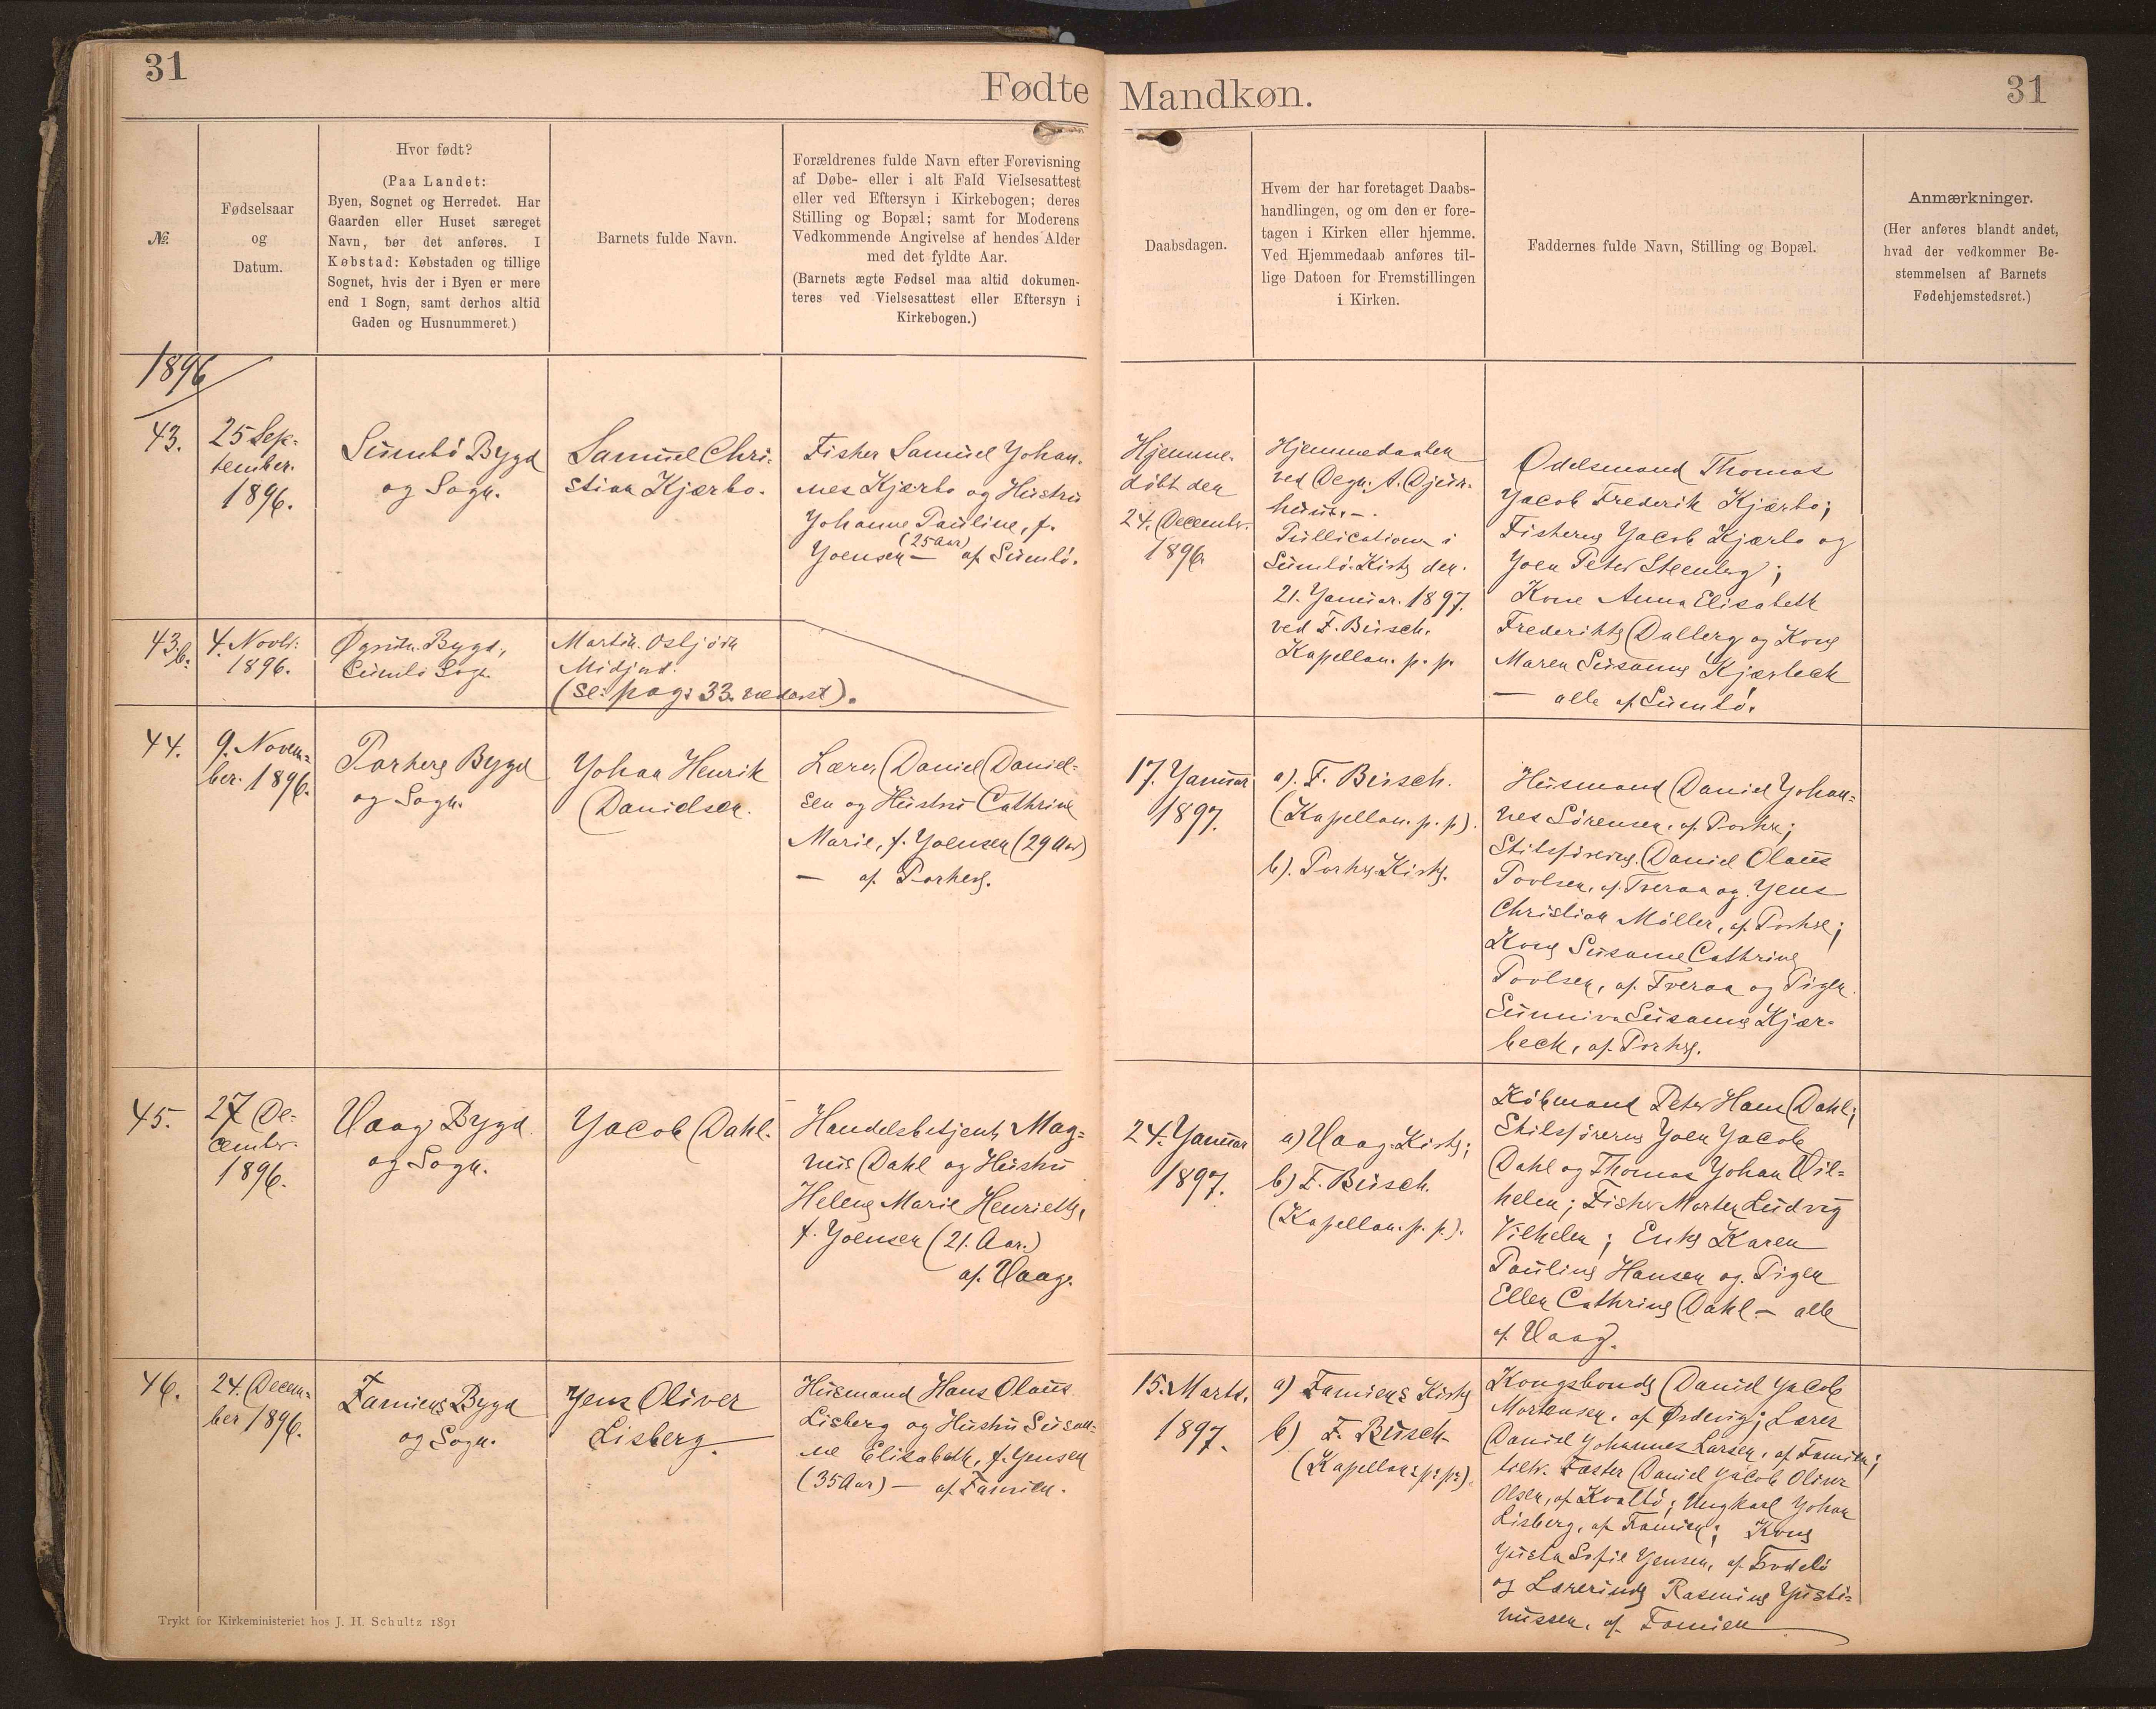 31
Fødte
Mandkøn.
31
№.
Fødselsaar
og
Datum.
Hvor født?
(Paa Landet:
Byen, Sognet og Herredet. Har
Gaarden eller Huset særeget
Navn, bør det anføres. I
Købstad: Købstaden og tillige
Sognet, hvis der i Byen er mere
end 1 Sogn, samt derhos altid
Gaden og Husnummeret.)
Barnets fulde Navn.
Forældrenes fulde Navn efter Forevisning
af Døbe- eller i alt Fald Vielsesattest
eller ved Eftersyn i Kirkebogen; deres
Stilling og Bopæl; samt for Moderens
Vedkommende Angivelse af hendes Alder
med det fyldte Aar.
(Barnets ægte Fødsel maa altid dokumen-
teres ved Vielsesattest eller Eftersyn i
Kirkebogen.)
Daabsdagen.
Hvem der har foretaget Daabs-
handlingen, og om den er fore-
tagen i Kirken eller hjemme.
Ved Hjemmedaab anføres til-
lige Datoen for Fremstillingen
i Kirken.
Faddernes fulde Navn, Stilling og Bopæl.
Anmærkninger.
(Her anføres blandt andet,
hvad der vedkommer Be-
stemmelsen af Barnets
Fødehjemstedsret.)
1896
43.
25 Sep-
tember.
1896.
Sumbö Bygd
og Sogn.
Samuel Chri-
stian Kjærbo.
Fisker Samuel Johan-
nes Kjærbo og Hustru
Johanne Pauline, f.
Joensen — (25 Aar) af Sumbö.
Hjemme-
döbt den
24. Decembr.
1896.
Hjemmedaaben
ved Degn. A. Djur-
huus.—.
Publicationen i
Sumbö. Kirke den.
21. Januar. 1897.
ved F. Busch.
Kapellan. p. p.
Odelsmand Thomas
Jacob Frederik Kjærbo;
Fiskerne Jacob Kjærbo og
Joen Peter Steenberg;
Kone Anna Elisabeth
Frederikke Dalberg og Kone
Maren Susanne Kjærbeck
— alle af Sumbö.
43.b.
4. Novb:
1896.
Sumbö Sogn.
Midjord.
(se: pag: 33. nederst).
44.
9. Novem-
ber. 1896.
Porkere Bygd
og Sogn.
Johan Henrik
Danielsen.
Lærer, Daniel Daniel-
sen og Hustru Cathrine
Marie, f. Joensen (29 Aar)
— af Porkere.
17. Januar
1897.
a). F. Busch.
(Kapellan. p. p).
b). Porkere. Kirke.
Husmand Daniel Johan-
nes Sörensen, af Porkere;
Skibsförerne. Daniel Olaus
Poulsen, af Tveraa og Jens
Christian Möller, af Porkere;
Kone Susanne Cathrine
Poulsen, af Tveraa og Pigen
Sunniva Susanne Kjær-
beck, af Porkere.
45.
27 De-
cembr.
1896.
Vaag Bygd
og Sogn.
Jacob Dahl.
Handelsbetjent, Mag-
nus Dahl og Hustru
Helene Marie Henriette,
f. Joensen (21. Aar.)
af. Vaag.
24. Januar
1897.
a) Vaag. Kirke;
b) F. Busch.
(Kapellan. p. p.).
Köbmand Peter Hans Dahl;
Skibsförerne Joen Jacob
Dahl og Thomas Johan Vil-
helm; Fisker Morten Ludvig
Vilhelm; Enke Karen
Pauline Hansen og Pigen
Ellen Cathrine Dahl — alle
af. Vaag.
46.
24. Decem-
ber 1896.
Famiens Bygd
og Sogn.
Jens Oliver
Lisberg.
Husmand Hans Olaus
Lisberg og Hustru Susan-
ne Elisabeth, f. Jensen
(35 Aar) — af Famien.
15. Marts.
1897.
a) Famiens Kirke
b) F. Busch
(Kapellan: p: p:).
Kongsbonde Daniel Jacob
Mortensen, af Ördevig; Lærer
Daniel Johannes Larsen, af Famien;
Fæster Daniel Jacob Oliver
Olsen, af Kvalbö; Ungkarl Johan
Lisberg, af Famien; Kone
Justa Sofie Jensen, af
og Lærerinde Rasmine Justi-
nussen, af Famien
Trykt for Kirkeministeriet hos J. H. Schultz 1891